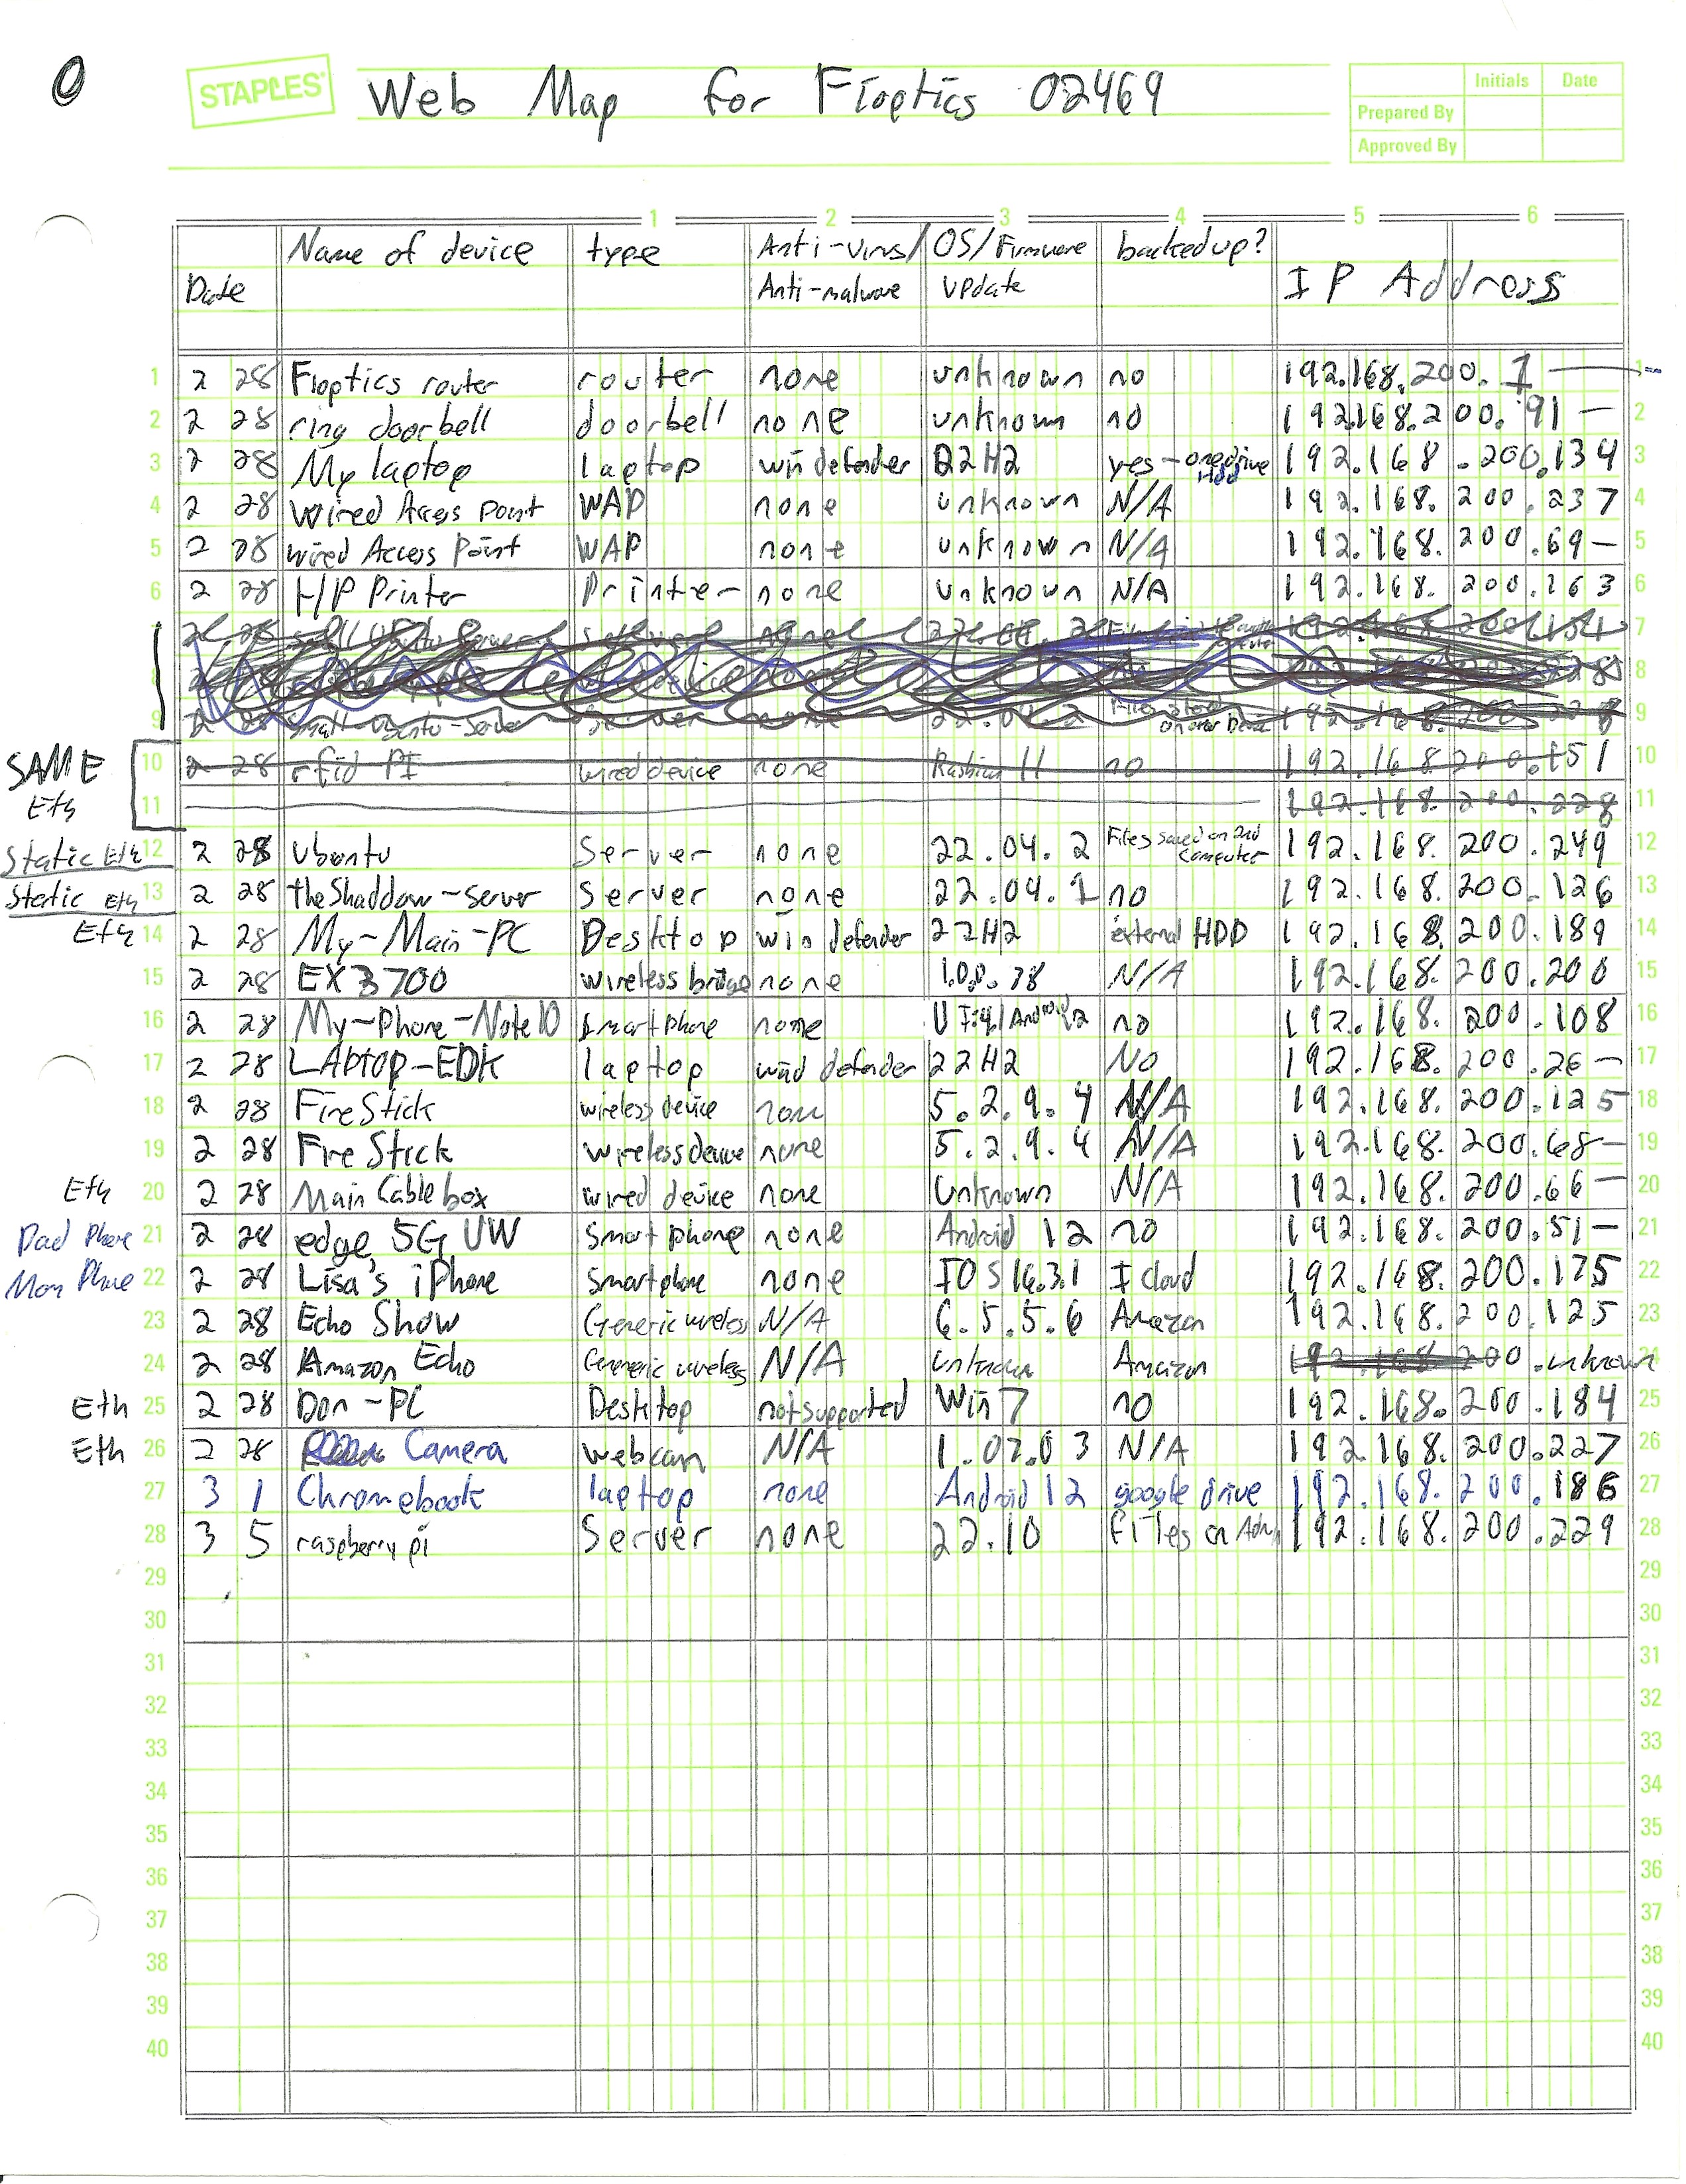 0
STAPLES Web Map for Fioptics 02469
Initials Date
Prepared By
Approved By
1 2 3 4 5 6
Date Name of device type Anti-virus/ Anti-malware OS/Firmware update backed up? IP Address
1 2 28 Fioptics router router none unknown no 192.168.200.1 — 1
2 2 28 ring doorbell doorbell none unknown no 192.168.200.91 — 2
3 2 28 My laptop laptop win defender 22H2 yes - onedrive HDD 192.168.200.134 3
4 2 28 Wired Access Point WAP none unknown N/A 192.168.200.237 4
5 2 28 wired Access Point WAP none unknown N/A 192.168.200.69 — 5
6 2 28 HP Printer Printer none unknown N/A 192.168.200.163 6
7
8
9 2 28 small-ubuntu-server server none 22.04.2 192.168.200.228 9
SAME 10 2 28 rfid PI wired device none Rasbian 11 no 192.168.200.151 10
Eth 11 192.168.200.228 11
Static Eth 12 2 28 Ubuntu Server none 22.04.2 Files saved on 2nd Computer 192.168.200.249 12
Static Eth 13 2 28 theShaddow-server Server none 22.04.1 no 192.168.200.126 13
Eth 14 2 28 My-Main-PC Desktop win defender 22H2 external HDD 192.168.200.189 14
15 2 28 EX3700 wireless bridge none 1.0.0.78 N/A 192.168.200.200 15
16 2 28 My-Phone-Note10 smartphone none no 192.168.200.108 16
17 2 28 LAptop-EDK laptop win defender 22H2 No 192.168.200.26 — 17
18 2 28 FireStick wireless device none 5.2.9.4 N/A 192.168.200.125 18
19 2 28 Fire Stick wireless device none 5.2.9.4 N/A 192.168.200.68 — 19
Eth 20 2 28 Main Cable box wired device none Unknown N/A 192.168.200.66 — 20
Dad Phone 21 2 28 edge 5G UW Smart phone none Android 12 no 192.168.200.51 — 21
Mom Phone 22 2 28 Lisa's iPhone Smartphone none IOS 16.3.1 I cloud 192.168.200.175 22
23 2 28 Echo Show Generic wireless N/A 6.5.5.6 Amazon 192.168.200.125 23
24 2 28 Amazon Echo Generic wireless N/A unknown Amazon 192.168.200.unknown 24
Eth 25 2 28 Don-PC Desktop not supported Win 7 no 192.168.200.184 25
Eth 26 2 28 Camera webcam N/A 1.07.03 N/A 192.168.200.227 26
27 3 1 Chromebook laptop none Android 12 google drive 192.168.200.186 27
28 3 5 raspberry pi Server none 22.10 files on 192.168.200.229 28
29 29
30 30
31 31
32 32
33 33
34 34
35 35
36 36
37 37
38 38
39 39
40 40